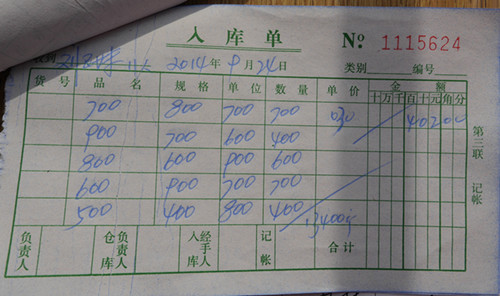 入库单 № 1115624
收到 2014年9月24日 类别 编号
货号 品名 规格 单位 数量 单价 金额
十万千百十元角分
700 800 700 700 030 40200
900 700 600 400
800 600 900 600
600 900 700 700
500 400 800 400 13400斤
负责人 仓库负责人 入库经手人 记帐 合计
第三联 记帐